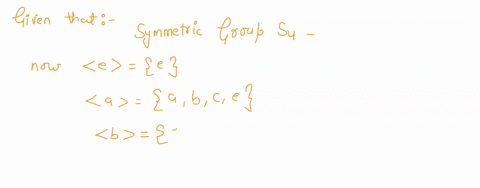 Given that:-
Symmetric Group S4 -
now <e> = {e}
<a> = {a, b, c, e}
<b> = {-